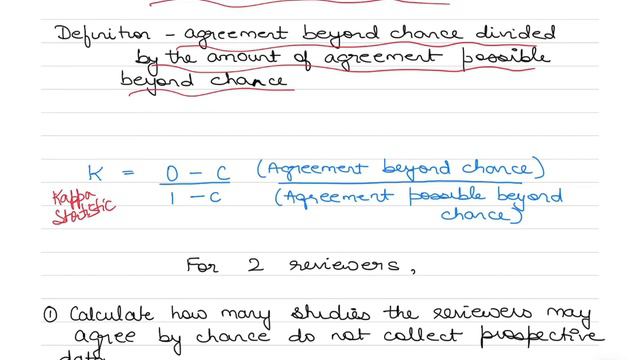 Definition - agreement beyond chance divided
by the amount of agreement possible
beyond chance
K = O - C (Agreement beyond chance)
1 - C (Agreement possible beyond
chance)
Kappa
Statistic
For 2 reviewers,
① Calculate how many studies the reviewers may
agree by chance do not collect prospective
data